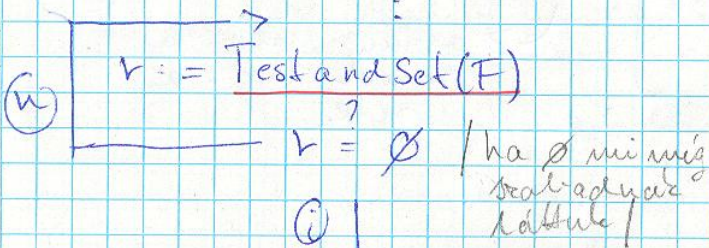 r := TestandSet(F)
(n)
r ?= ∅ /ha ∅ mi még
szabadnak
(i) láttuk/